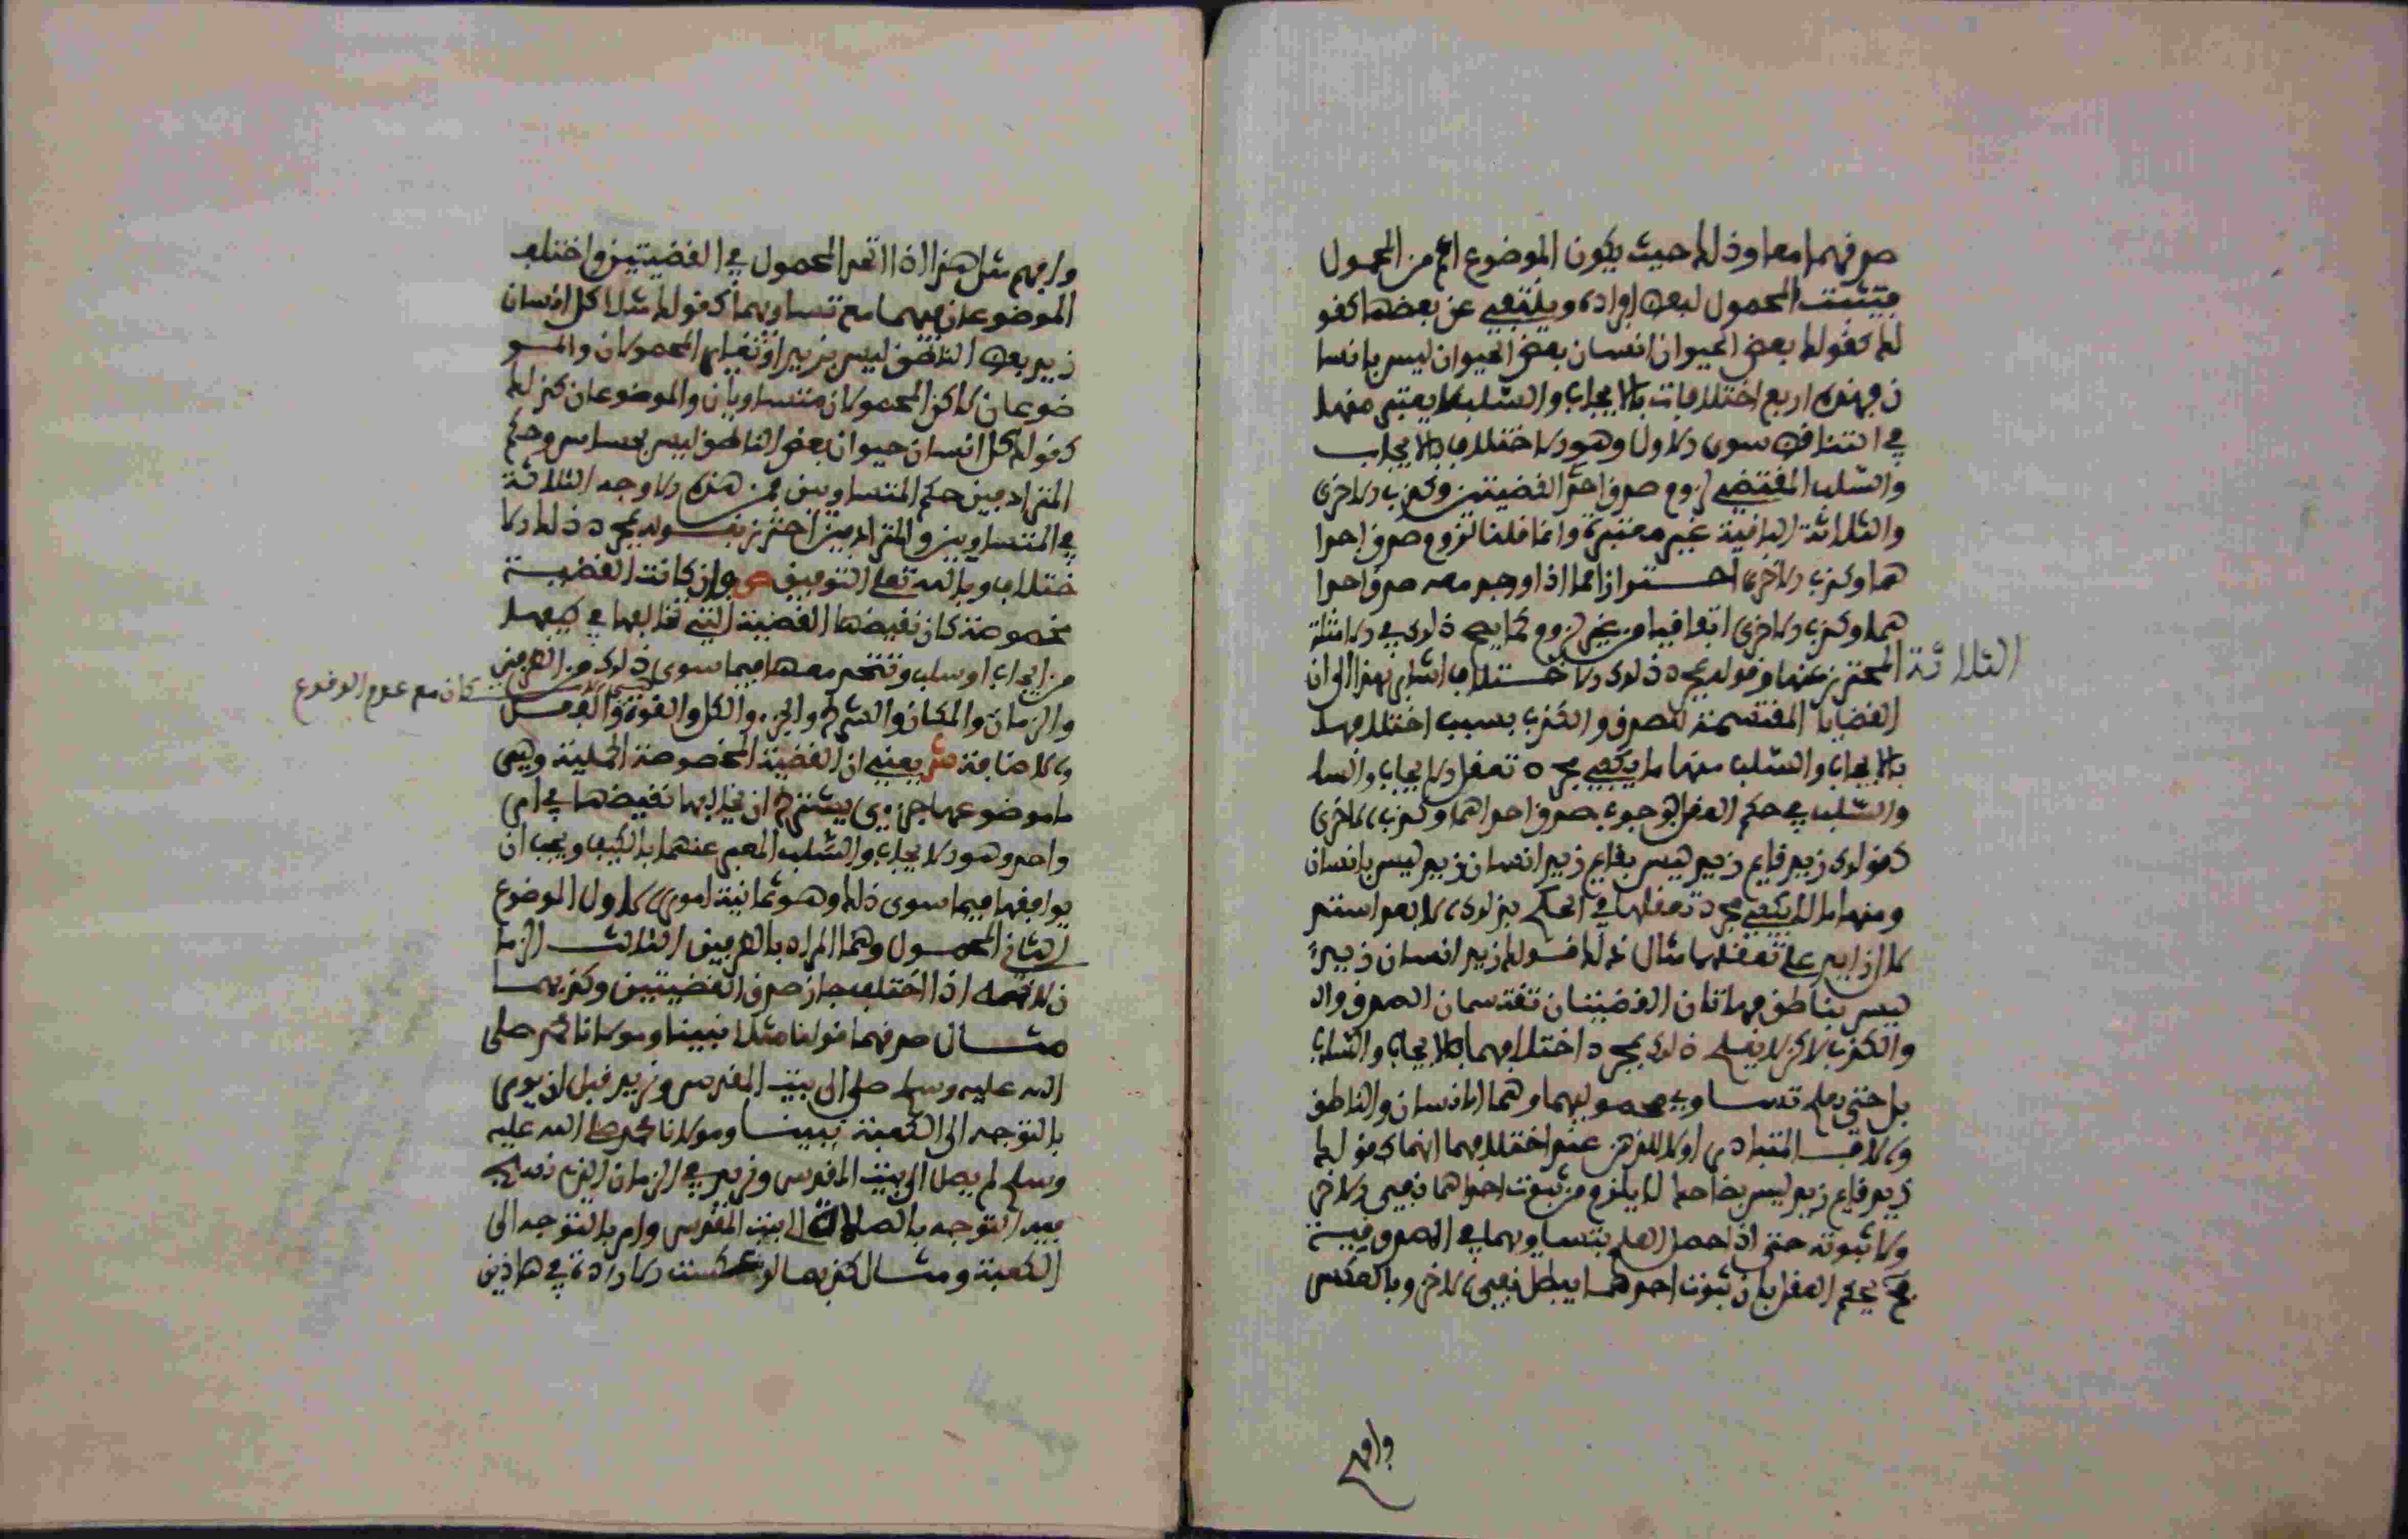 صدقهما معا وذلك حيث يكون الموضوع اعم من المحمول
فيثبت المحمول لبعض افراده وينتفي عن بعضها كقو
لك كقولك بعض الحيوان انسان بعض الحيوان ليس بانسا
ن فهذه اربع اختلافات بالايجاب والسلب لا يعتبر منها
في التناقض سوى الاول وهو الاختلاف بالايجاب
والسلب المقتضي لزوم صدق احد القضيتين وكذب الاخرى
والثلاثة الباقية غير معتبرة وانما قلنا لزوم صدق احدا
هما وكذب الاخرى احترازا مما اذا وجد معه صدق احدا
هما وكذب الاخرى اتفاقيا من غير لزوم كما يجيء ذلك في الامثلة
الثلاثة
المحترز عنها وقوله بمجرد ذلك الاختلاف اشار بهذا الى ان
القضايا المقتسمة للصدق والكذب بسبب اختلافهما
بالايجاب والسلب منها ما يكفي مجرد تعقل الايجاب والسا
والسلب في حكم العقل بوجوب صدق احداهما وكذب الاخرى
كقولك زيد قايم زيد ليس بقايم زيد انسان زيد ليس بانسان
ومنها ما لا يكفي مجرد تعقلهما في الحكم بذلك الا بعد استتم
الزايد على تعقلهما مثال ذلك قولك زيد انسان زيد
ليس بناطق فهاتان القضيتان تقتسمان الصدق وال
والكذب لاكن لا يعلم ذلك بمجرد اختلافهما بالايجاب والسلب
بل حتى يعلم تساوي محموليهما وهما الانسان والناطق
والا المتبادر اولا للذهن عند اختلافهما انهما كقولك
زيد قايم زيد ليس بضاحك لا يلزم من ثبوت احداهما نفي الاخر
ولا ثبوته حتى اذا حصل العلم بتساويهما في الصدق فحينئذ
يحكم العقل بان ثبوت احدهما يبطل نفي الاخر وبالعكس
وافهم
وافهم مثل هذا اذا اتحد المحمول في القضيتين واختلف
الموضوعان فيهما مع تساويهما كقولك مثلا كل انسان
زيد بعض الناطق ليس بزيد او تغاير المحمولان والمو
ضوعان لاكن المحمولان متساويان والموضوعان كذلك
كقولك كل انسان حيوان بعض الناطق ليس بحساس وحكم
المترادفين حكم المتساويين فمن هذه الاوجه الثلاثة
في المتساويين والمترادفين احترز بقوله بمجرد ذلك الا
ختلاف وبالله تعلى التوفيق ص وان كانت القضية
مخصوصة كان نقيضها القضية التي تخالفها في كيفها
من ايجاب او سلب وتتحد معها فيما سوى ذلك من الطرفين
والزمان والمكان والشرط والجزء والكل والقوة والفعل
كان مع عدم الوقوع
والاضافة ش يعني ان القضية المخصوصة الحملية وهي
ما موضوعها جزءي يشترط ان يخالفها نقيضها في امر
واحد وهو الايجاب والسلب المعبر عنهما بالكيف ويجب ان
يوافقها فيما سوى ذلك وهو ثمانية امور الاول الموضوع
الثاني المحمول وهما المراد بالطرفين الثالث الزما
ن لانهما اذا اختلف جاز صدق القضيتين وكذبهما
مثال صدقهما قولنا مثلا نبينا ومولانا محمد صلى
الله عليه وسلم صلى الى بيت المقدس ونريد قبل ان يومر
بالتوجه الى الكعبة نبينا ومولانا محمد صلى الله عليه
وسلم لم يصل الى بيت المقدس ونريد في الزمان الذي نسخ
فيه التوجه بالصلاة الى بيت المقدس وامر بالتوجه الى
الكعبة ومثال كذبهما لو عكست الارادة في هاذين